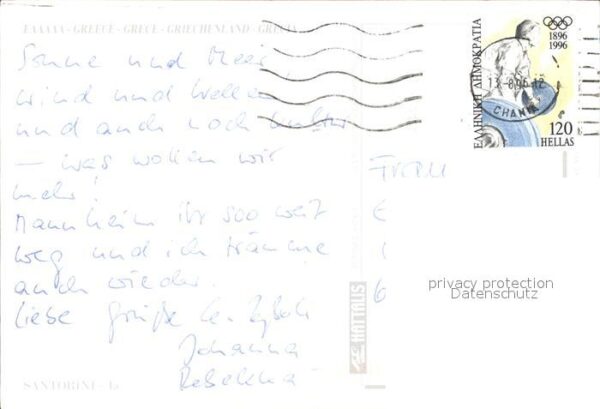 ΕΛΛΑΣ - GREECE - GRECE - GRIECHENLAND - GRECIA
Sonne und Meer
Wind und Wellen
und auch noch
– was wollen wir
mehr!
Mannheim ist soo weit
weg und ich träume
auch wieder.
Liebe Grüße
Johanna
Rebekka
SANTORINI
HAITALIS
ΕΛΛΗΝΙΚΗ ΔΗΜΟΚΡΑΤΙΑ
1896
1996
CHANIA
120
HELLAS
Frau
privacy protection
Datenschutz